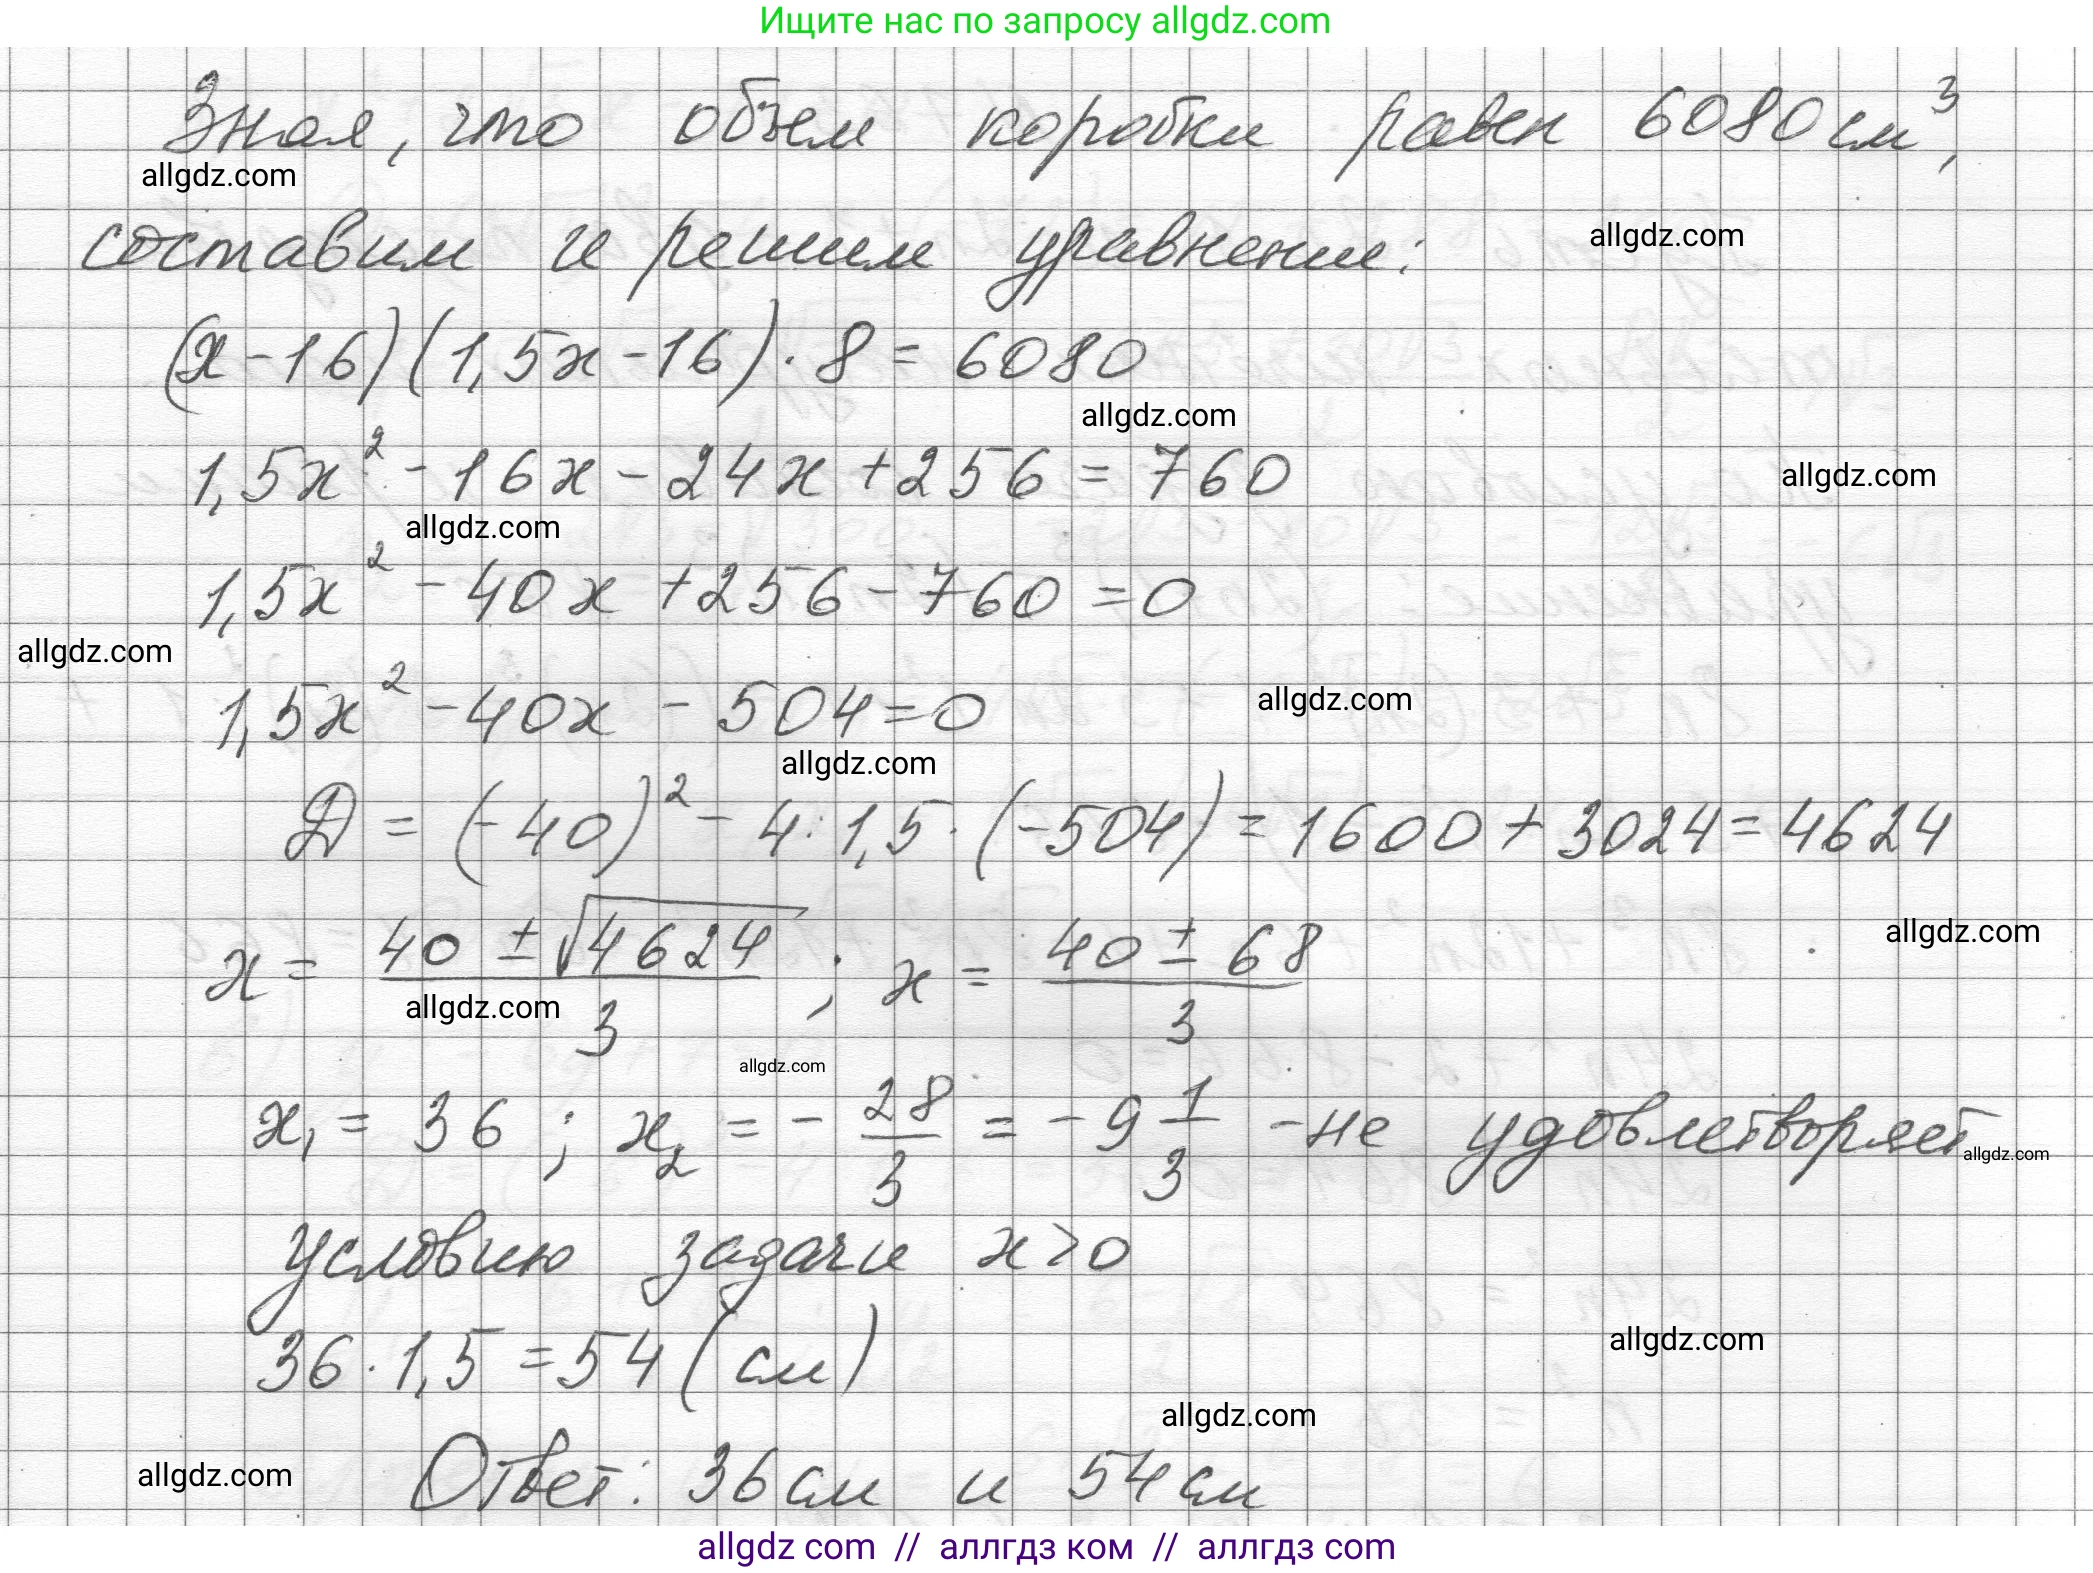 Ищите нас по запросу allgdz.com
Зная, что объем коробки равен 6080 см³,
allgdz.com
составим и решим уравнение:
allgdz.com
(x-16)(1,5x-16)·8=6080
allgdz.com
1,5x²-16x-24x+256=760
allgdz.com
allgdz.com
1,5x²-40x+256-760=0
allgdz.com
1,5x²-40x-504=0
allgdz.com
allgdz.com
D=(-40)²-4·1,5·(-504)=1600+3024=4624
x=(40±√4624)/3; x=(40±68)/3
allgdz.com
allgdz.com
allgdz.com
x₁=36; x₂=-28/3=-9 1/3 -не удовлетворяет
allgdz.com
условию задачи x>0
allgdz.com
36·1,5=54(см)
allgdz.com
allgdz.com
Ответ: 36см и 54см
allgdz com // аллгдз ком // аллгдз com